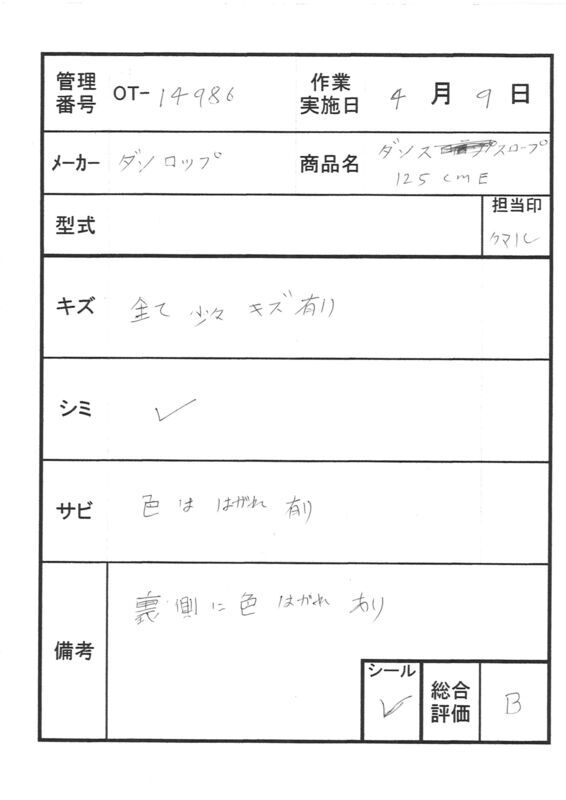 管理番号 OT-14986 作業実施日 4月9日
メーカー ダンロップ 商品名 ダンスロープ
125cmE
型式 担当印
クマル
キズ 全て 少々 キズ有り
シミ ✓
サビ 色は はがれ 有り
備考 裏側に色 はがれ あり
シール ✓ 総合評価 B